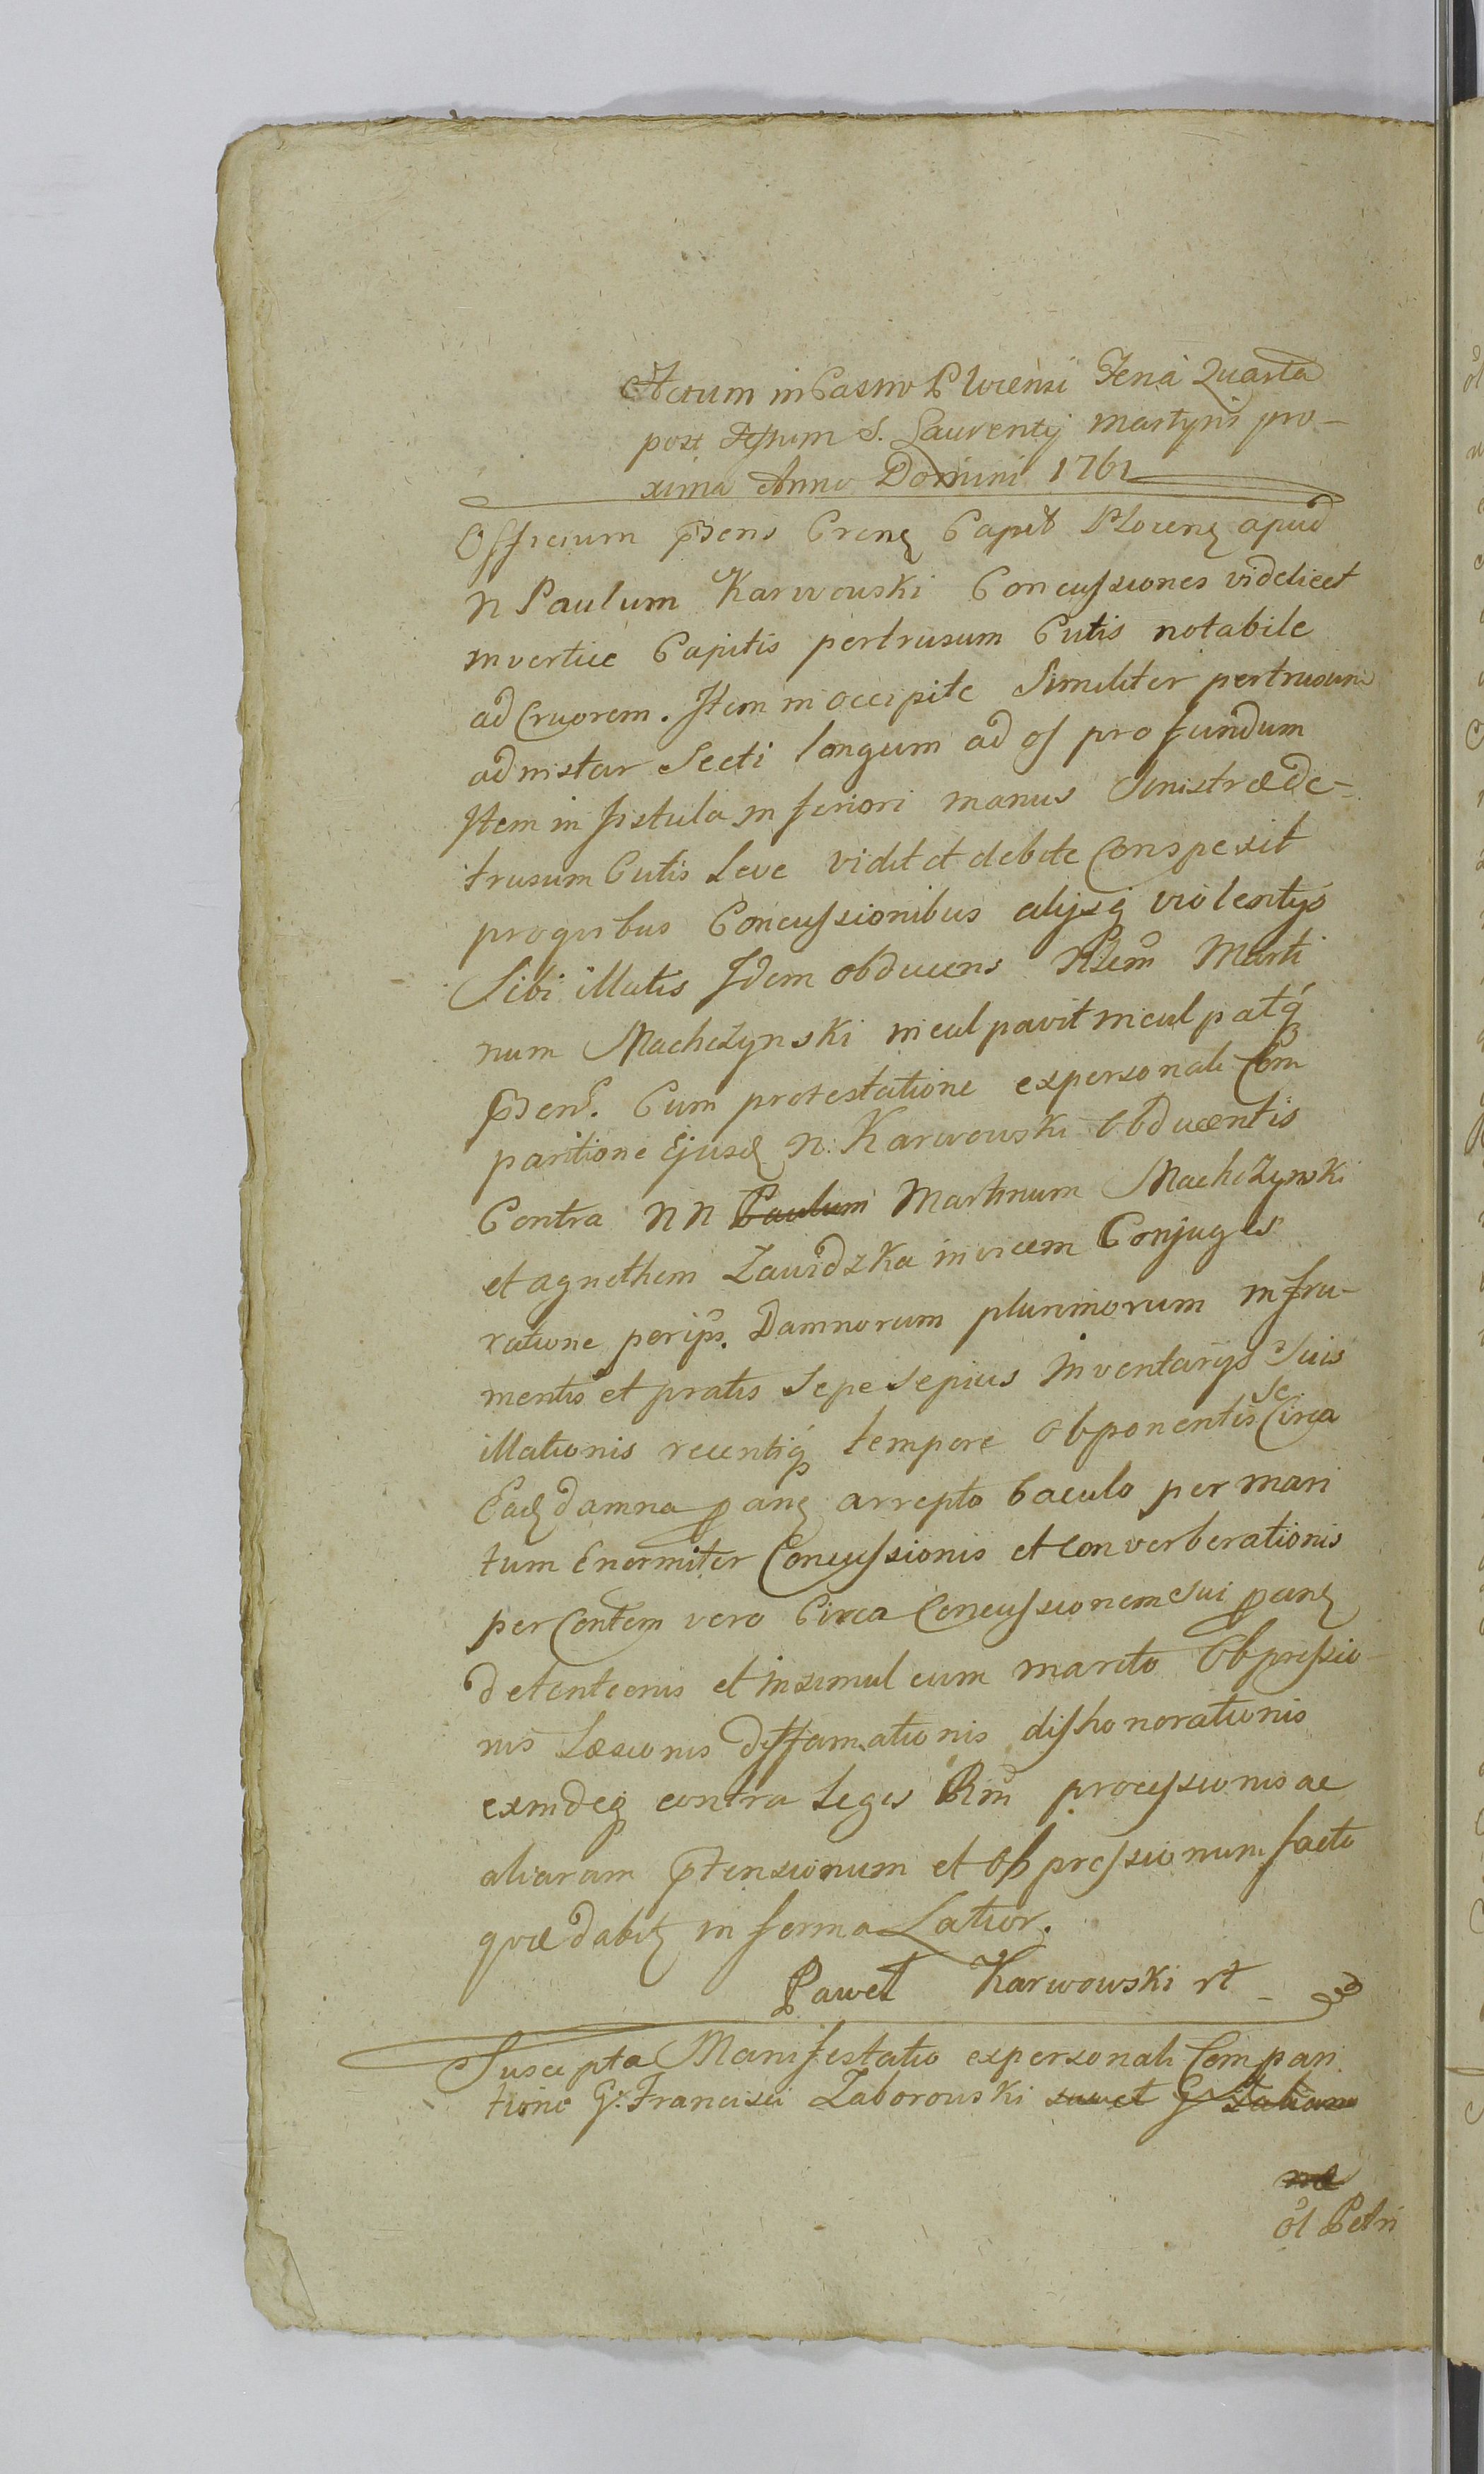 Actum in Castro Plocensi Feria Quarta
post Festum S. Laurentij Martyris pro-
xima Anno Domini 1761
Officium Pbens Crenꝫ Capit Plocenꝫ apud
N Paulum Karwowski Concussiones videlicet
in vertice Capitis pertrusum Cutis notabile
ad Cruorem. Item in occipite Similiter pertrusum
ad instar Secti longum ad os profundum
Item in fistula inferiori manus Sinistræ de-
trusum Cutis Leve vidit et debite Conspexit
pro qvibus Concussionibus alijsq violentijs
Sibi illatis Idem obducens Nlem Marti
num Machczynski inculpavit inculpatq
Pbens. Cum protestatione ex personali Com
paritione Ejusd N: Karwowski Obducentis
Contra NN Paulum Martinum Machczynski
et agnethem Zawidzka invicem Conjuges
ratione peripś. Damnorum plurimorum in fru-
mentis et pratis Sepe Sepius Inventarijs Suis
illationis recentiq tempore obponentis Se Circa
Eadꝫ damna panꝫ arrepto baculo per mari
tum Enormiter Concussionis et Converberationis
per Contem vero Circa Concussionem Sui panꝫ
detentionis et Insimul cum marito Obpressio-
nis Læsionis diffamationis dishonorationis
exindeq contra Leges Rni processionis ac
aliarum ptensionum et Obpressionum facto
qvæ dabiꝫ in forma Latior.
Paweł Karwowski rt
Suscepta Manifestatio ex personali Compari
tione G. Francisci Zaborowski G
ol Petri